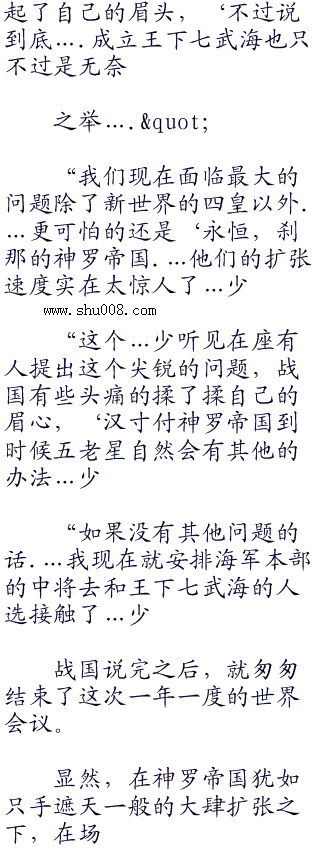 起了自己的眉头，‘不过说
到底….成立王下七武海也只
不过是无奈
之举….&quot;
“我们现在面临最大的
问题除了新世界的四皇以外.
…更可怕的还是‘永恒，刹
那的神罗帝国.…他们的扩张
速度实在太惊人了…少
www.shu008.com
“这个…少听见在座有
人提出这个尖锐的问题，战
国有些头痛的揉了揉自己的
眉心，‘汉寸付神罗帝国到
时候五老星自然会有其他的
办法…少
“如果没有其他问题的
话.…我现在就安排海军本部
的中将去和王下七武海的人
选接触了…少
战国说完之后，就匆匆
结束了这次一年一度的世界
会议。
显然，在神罗帝国犹如
只手遮天一般的大肆扩张之
下，在场